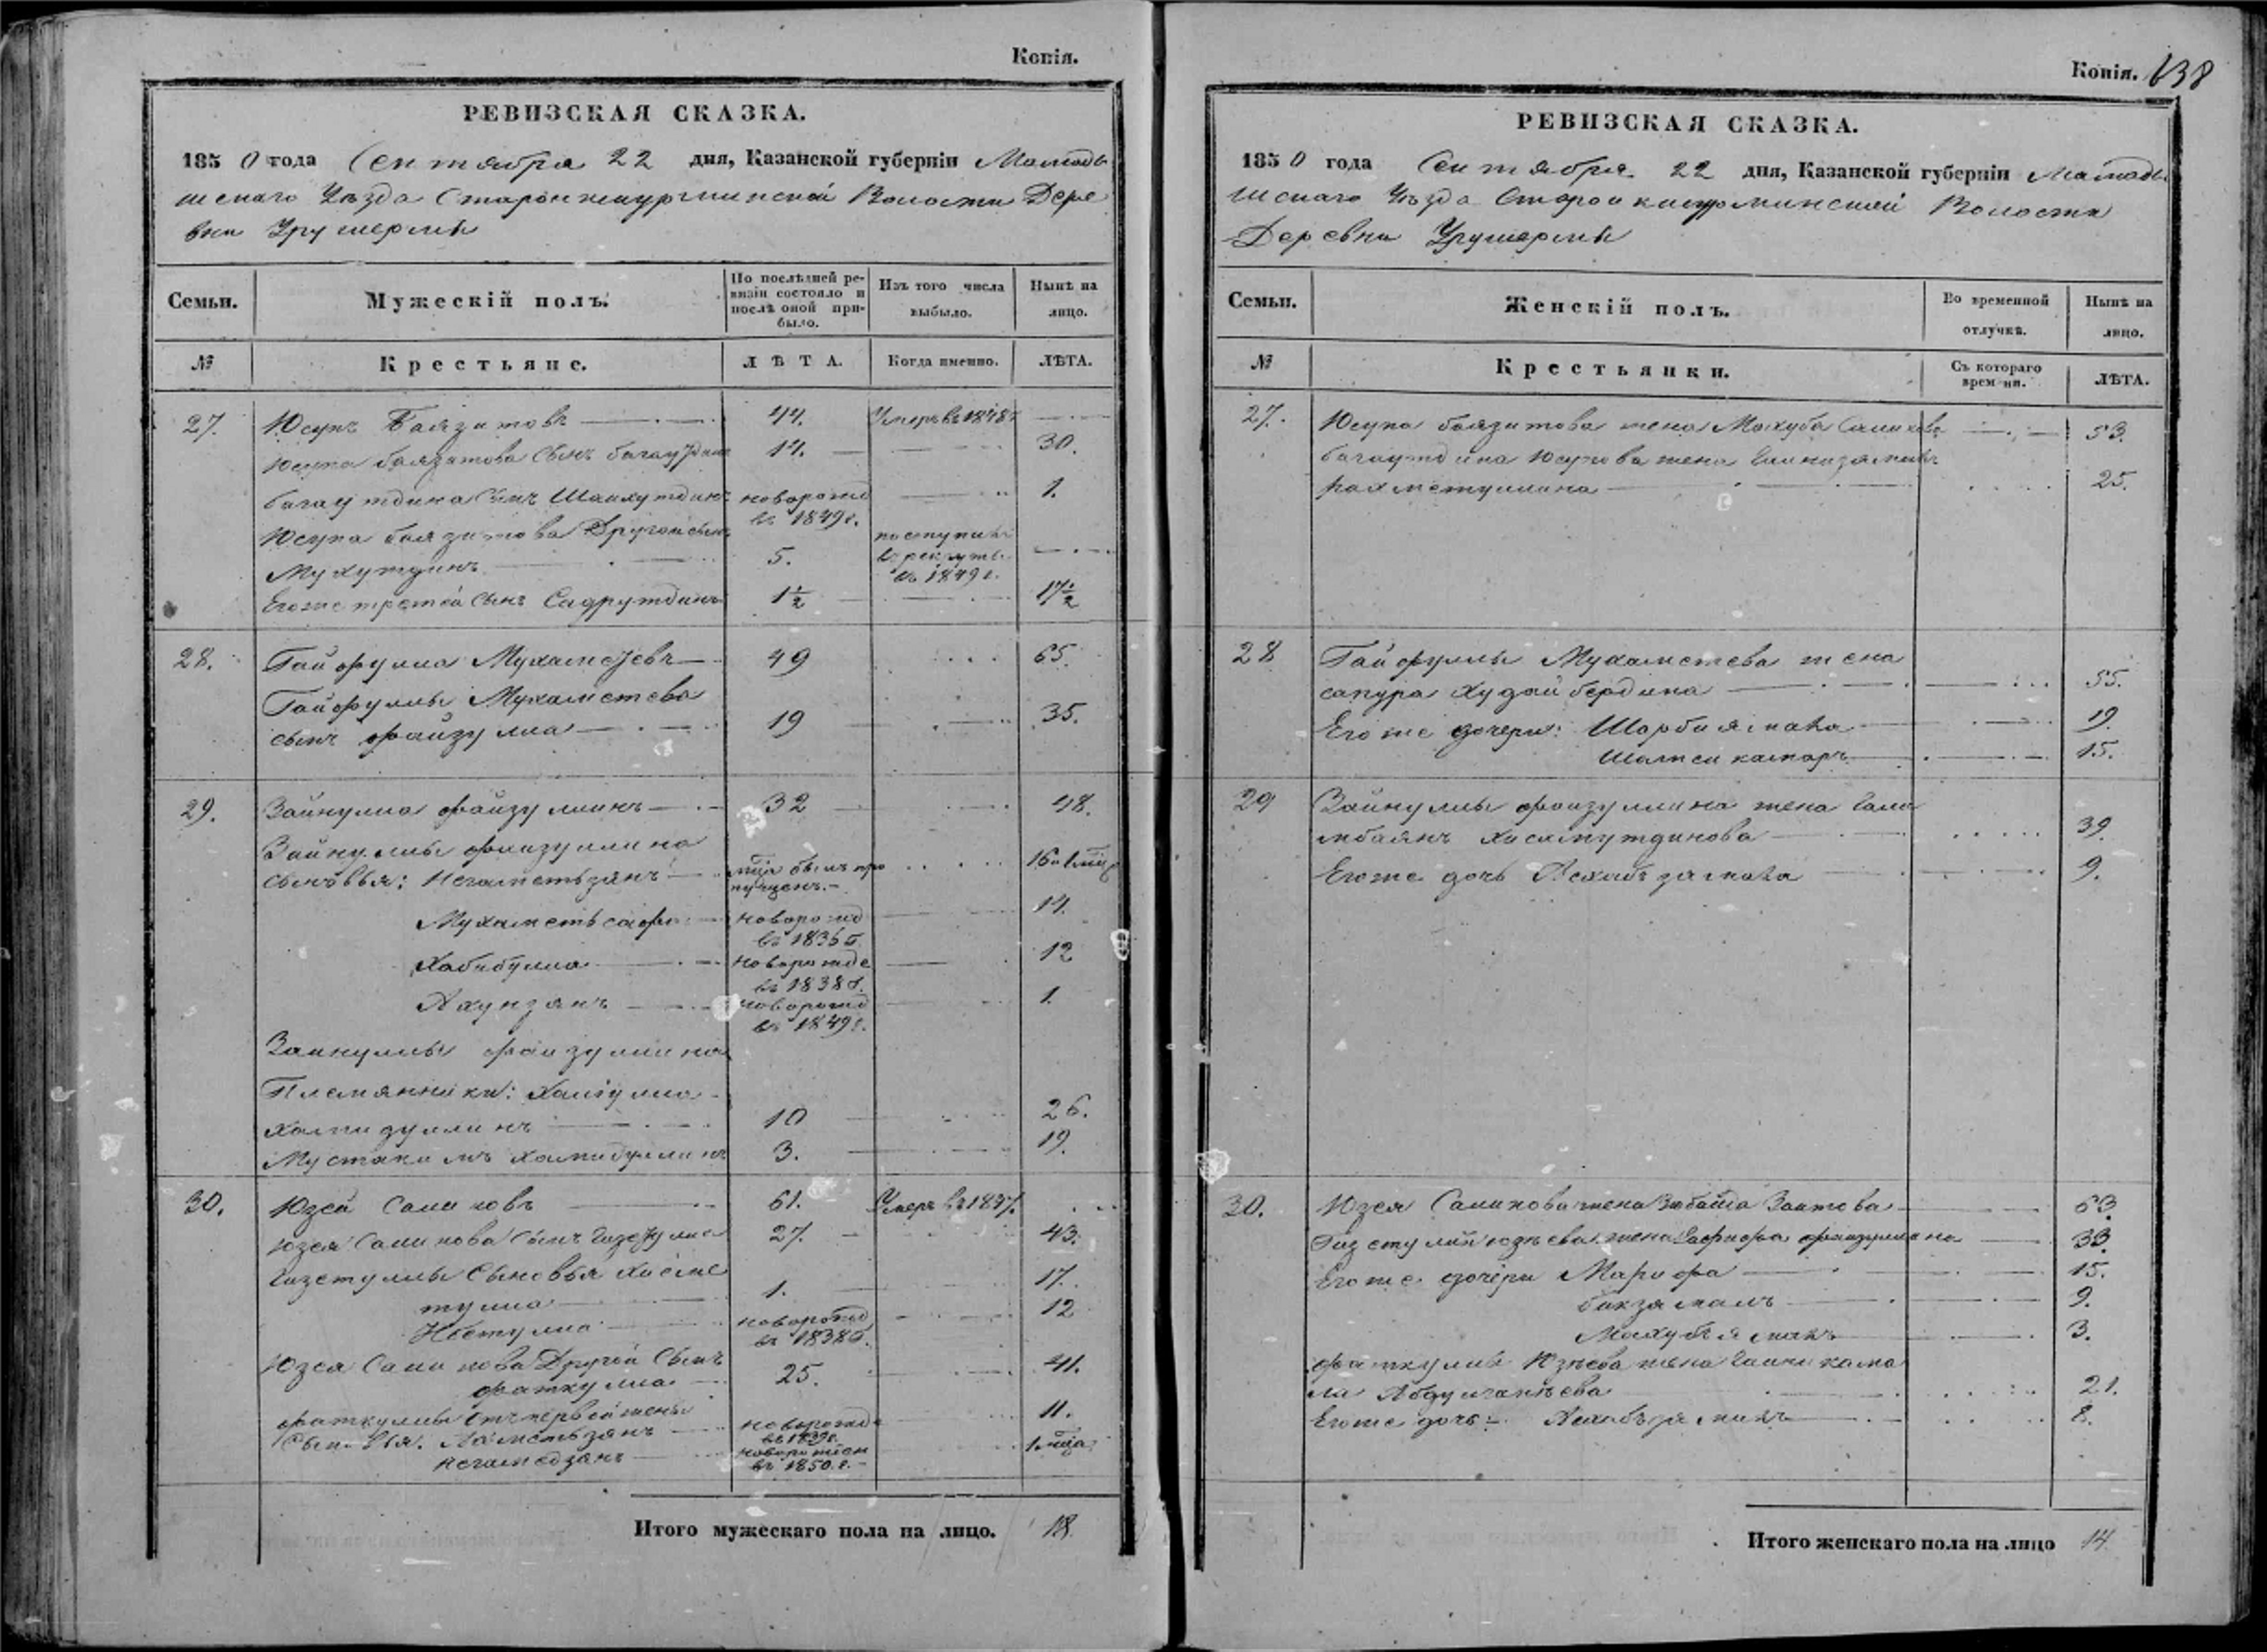 Копія.
РЕВИЗСКАЯ СКАЗКА.
1850 года Сентября 22 дня, Казанской губерніи Мамады
шскаго Уѣзда Волости Дере
вни Урушермы
Семьи.
Мужескій полъ.
По послѣдней ре-
визіи состояло и
послѣ оной при-
было.
Изъ того числа
выбыло.
Нынѣ на
лицо.
№
Крестьяне.
ЛѢТА.
Когда именно.
ЛѢТА.
27. Юсупъ Баязитовъ 44. Умеръ въ 1848 г
Юсупа баязитова сынъ багаутдинъ 14. 30.
багаутдина сынъ Шаихутдинъ новорожд 1.
въ 1849 г.
Юсупа баязитова Другой сынъ поступилъ
Мухутдинъ 5. в рекруты
въ 1849 г.
Егоже третей сынъ Садрутдинъ 1½ 17½
28. Гайфулла Мухаметевъ 49 65.
Гайфуллы Мухаметева
сынъ файзулла 19 35.
29. Зайнулла файзуллинъ 32 48.
Зайнуллы файзуллина
сыновья: Негаметьзянъ былъ про 16 и 1 мѣц
пущенъ.
Мухаметьсафа новорожд 14.
въ 1836 г.
Хабибулла новорожде 12
въ 1838 г.
Ахунзянъ новорожд 1.
въ 1849 г.
Заинуллы фаизуллина
Племянники: Хамзулла
хамидуллинъ 10 26.
Мустакимъ хамидуллинъ 3. 19.
30. Юзей Салиховъ 61. Умеръ въ 1847.
Юзея Салихова сынъ 27. 43.
Гизетуллы Сыновья Хисаме
тулла 1. 17.
Нетулла новорожд 12
въ 1838 г.
Юзея Салихова Другой Сынъ
фаткулла 25. 41.
фаткуллы отъ первой жены новорожд 11.
Сыновья: Ахметьзянъ въ 1839 г.
негамедзянъ новорожден 1. мѣца
въ 1850. г.
Итого мужескаго пола на лицо. 18.
Копія. 638
РЕВИЗСКАЯ СКАЗКА.
1850 года Сентября 22 дня, Казанской губерніи Мамады
шскаго Уѣзда Волости
Деревни Урушермы
Семьи.
Женскій полъ.
Во временной
отлучкѣ.
Нынѣ на
лицо.
№
Крестьянки.
Съ котораго
времени.
ЛѢТА.
27. Юсупа баязитова жена Махуба Салихова 53.
багаутдина Юсупова жена
рахметуллина 25.
28 Гайфуллы Мухаметева жена
сапура Худайбердина 55.
Егоже дочери: Шарбиямала 19.
Шамсикамаръ 15.
29 Зайнуллы фаизуллина жена Гали
мбаянъ Хисамутдинова 39.
Егоже дочь 9.
30. Юзея Салихова жена Зюбайда Заитова 63.
Гизетуллы юзѣева жена Гафифа фаизуллина 33.
Егоже дочери Марифа 15.
бикзямалъ 9.
Махубъямалъ 3.
фаткуллы Юзѣева жена Гайникама
ла Абдулганѣева 21.
Егоже дочь: 8.
Итого женскаго пола на лицо 14